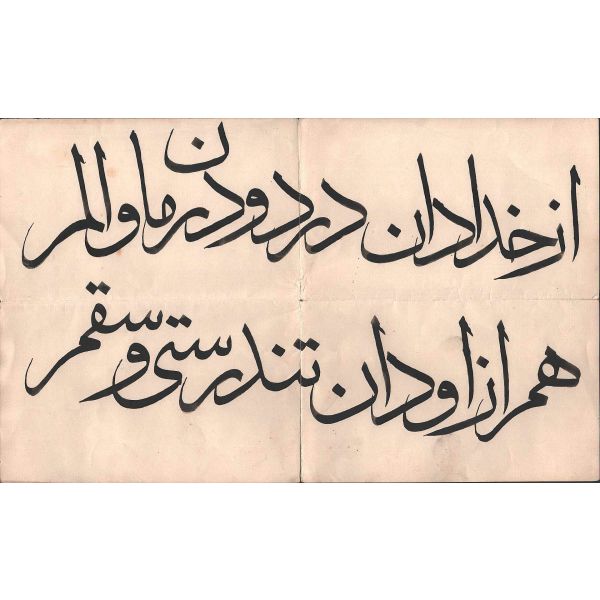 از خدا دان درد و درمان و الم
هم از او دان تندرستی و سقم